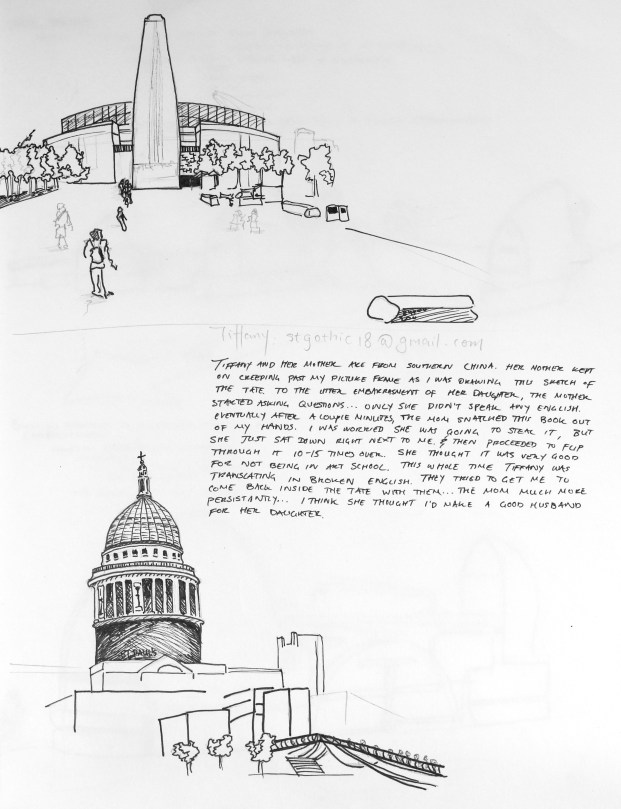 Tiffany. stgothic18@gmail.com
TIFFANY AND HER MOTHER ARE FROM SOUTHERN CHINA. HER MOTHER KEPT
ON CREEPING PAST MY PICTURE FRAME AS I WAS DRAWING THIS SKETCH OF
THE TATE. TO THE UTTER EMBARRASMENT OF HER DAUGHTER, THE MOTHER
STARTED ASKING QUESTIONS... ONLY SHE DIDN'T SPEAK ANY ENGLISH.
EVENTUALLY AFTER A COUPLE MINUTES, THE MOM SNATCHED THIS BOOK OUT
OF MY HANDS. I WAS WORRIED SHE WAS GOING TO STEAL IT, BUT
SHE JUST SAT DOWN RIGHT NEXT TO ME. & THEN PROCEEDED TO FLIP
THROUGH IT 10-15 TIMES OVER. SHE THOUGHT IT WAS VERY GOOD
FOR NOT BEING IN ART SCHOOL. THIS WHOLE TIME TIFFANY WAS
TRANSLATING IN BROKEN ENGLISH. THEY TRIED TO GET ME TO
COME BACK INSIDE THE TATE WITH THEM... THE MOM MUCH MORE
PERSISTANTLY... I THINK SHE THOUGHT I'D MAKE A GOOD HUSBAND
FOR HER DAUGHTER.
ST. PAUL'S